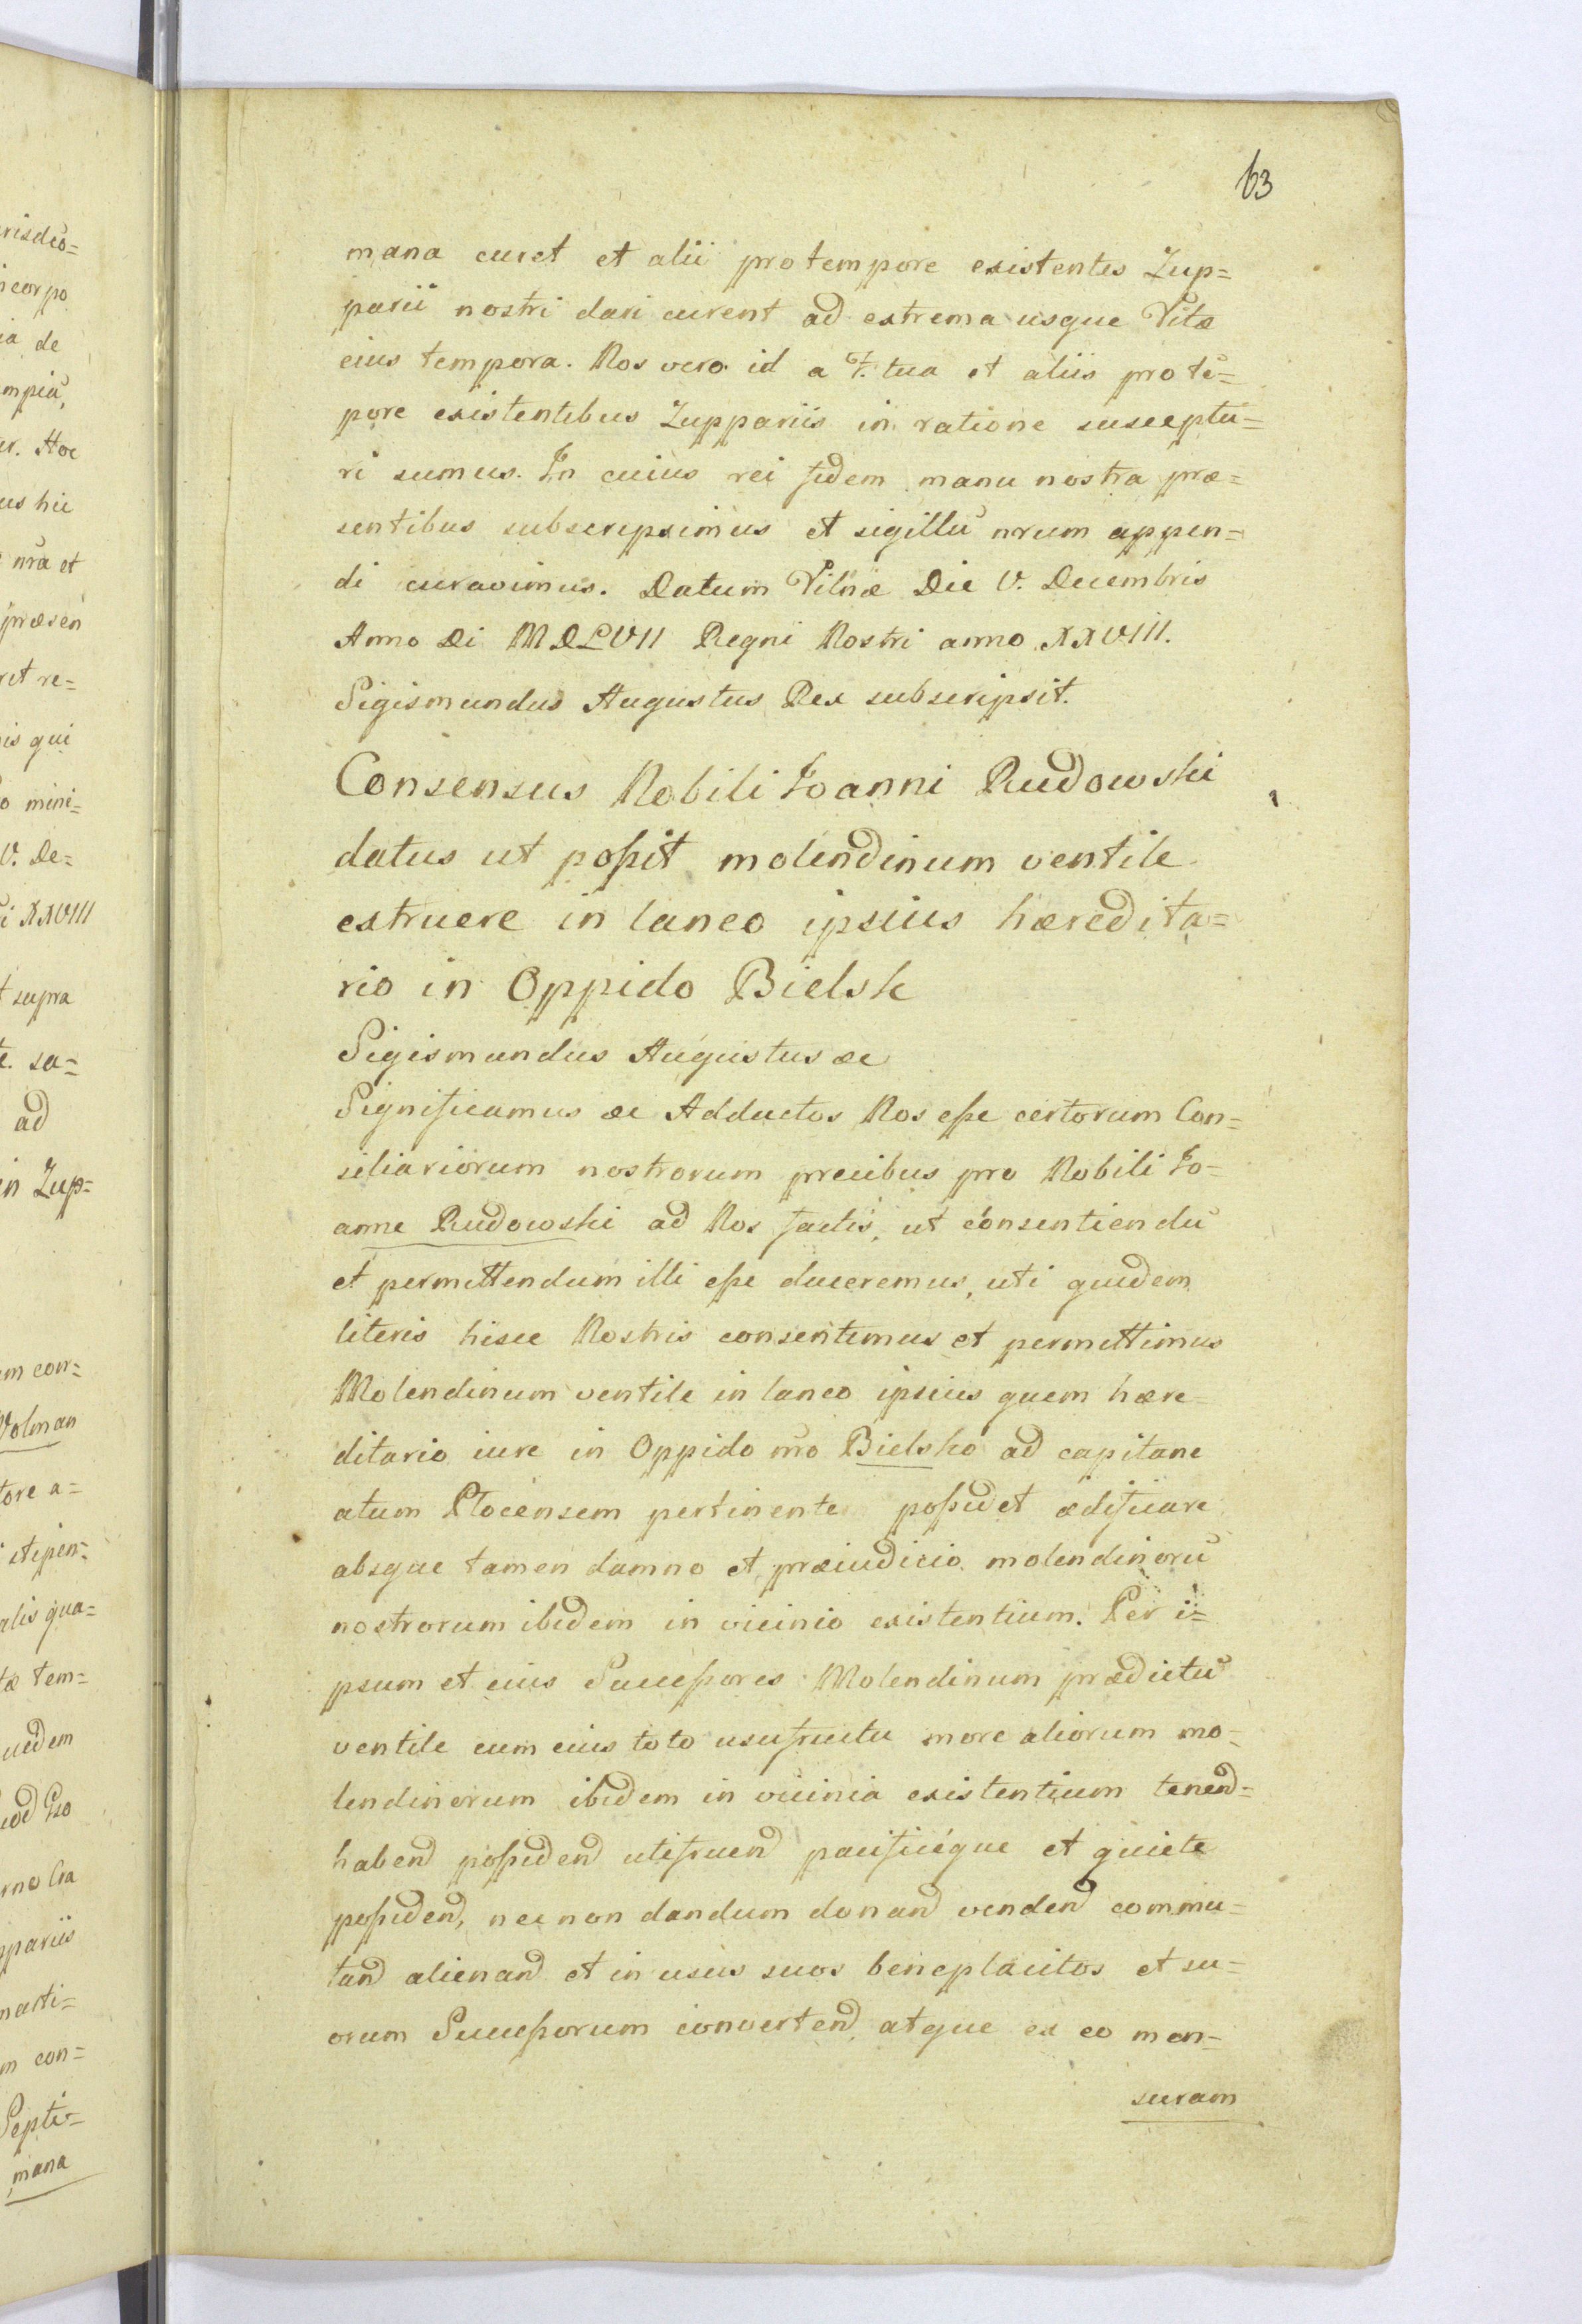 63
mana curet et alii pro tempore existentes Zup=
parii nostri dari curent ad extrema usque Vitæ
eius tempora. Nos vero id a F. tua et aliis pro tē=
pore existentibus Zuppariis in ratione susceptu=
ri sumus. In cuius rei fidem manu nostra præ=
sentibus subscripsimus et sigillū nrum appen=
di curavimus. Datum Vilnæ Die V. Decembris
Anno Di MDLVII Regni Nostri anno XXVIII.
Sigismundus Augustus Rex subscripsit.
Consensus Nobili Joanni Rudowski
datus ut poßit molendinum ventile
extruere in laneo ipsius hæredita=
rio in Oppido Bielsk
Sigismundus Augustus æc
Significamus æc Adductos Nos eße certorum Con=
siliariorum nostrorum precibus pro Nobili Jo=
anne Rudowski ad Nos factis, ut consentiendū
et permittendum illi eße duceremus, uti quidem
literis hisce Nostris consentimus et permittimus
Molendinum ventile in laneo ipsius quem hære=
ditario iure in Oppido nro Bielsko ad capitane
atum Plocensem pertinente poßidet ædificare
absque tamen damno et præiudicio molendinorū
nostrorum ibidem in vicinio existentium. Per i=
psum et eius Succeßores Molendinum prædictū
ventile cum eius toto usufructu more aliorum mo=
lendinorum ibidem in vicinia existentium tenend=
habend poßidend utifruend pacificéque et quiete
poßidend, nec non dandum donand vendend commu=
tand alienand et in usus suos beneplacitos et su=
orum Succeßorum convertend, atque ex eo men=
suram
risdio=
ncorpo
ia de
mpiā,
ur. Hoc
us hic
nra et
præsen
ret re=
is qui
o mini=
V. De=
i XXVIII
t supra
sa=
ad
in Zup=
m con=
Wolman
tore a=
stipen=
alis qua=
tæ tem=
uidem
ppariis
m con=
Septi=
mana